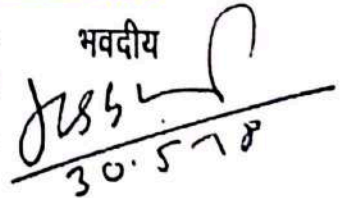 भवदीय
30.5.18